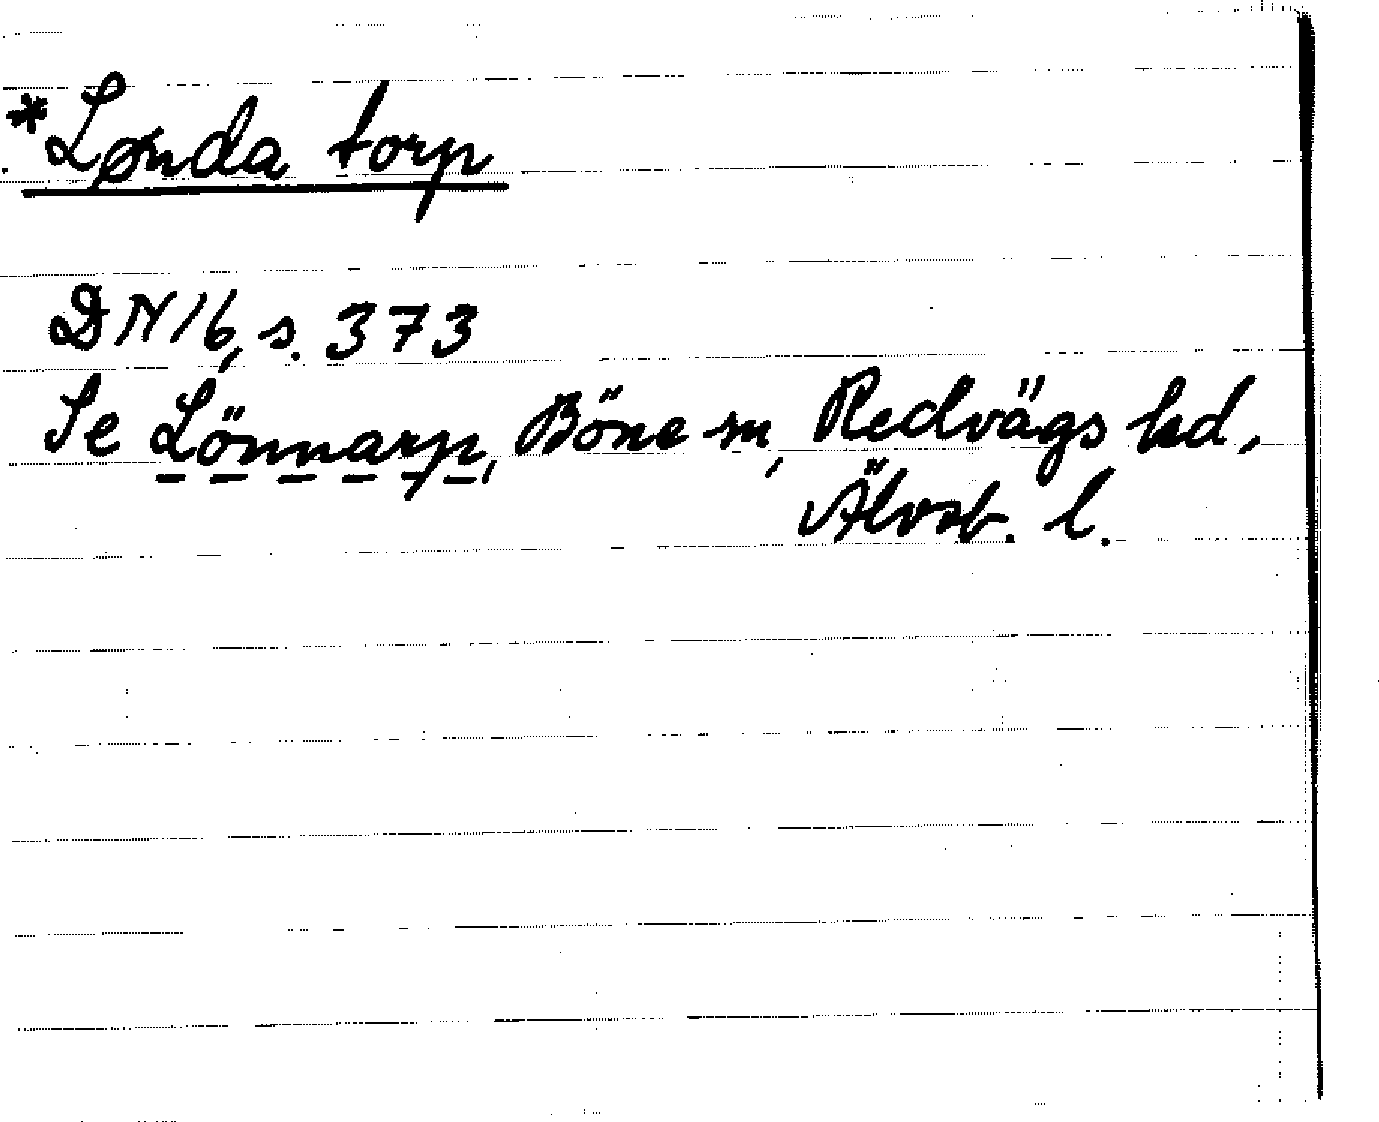 *Lønda torp
DN 16, s. 373
Se Lönnarp, Böne sn, Redvägs hd,
Älvsb. l.